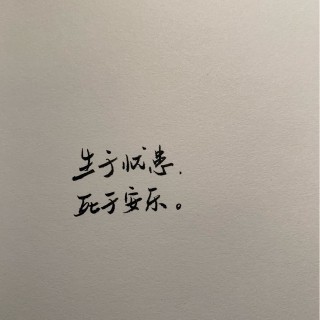 生于忧患.
死于安乐。